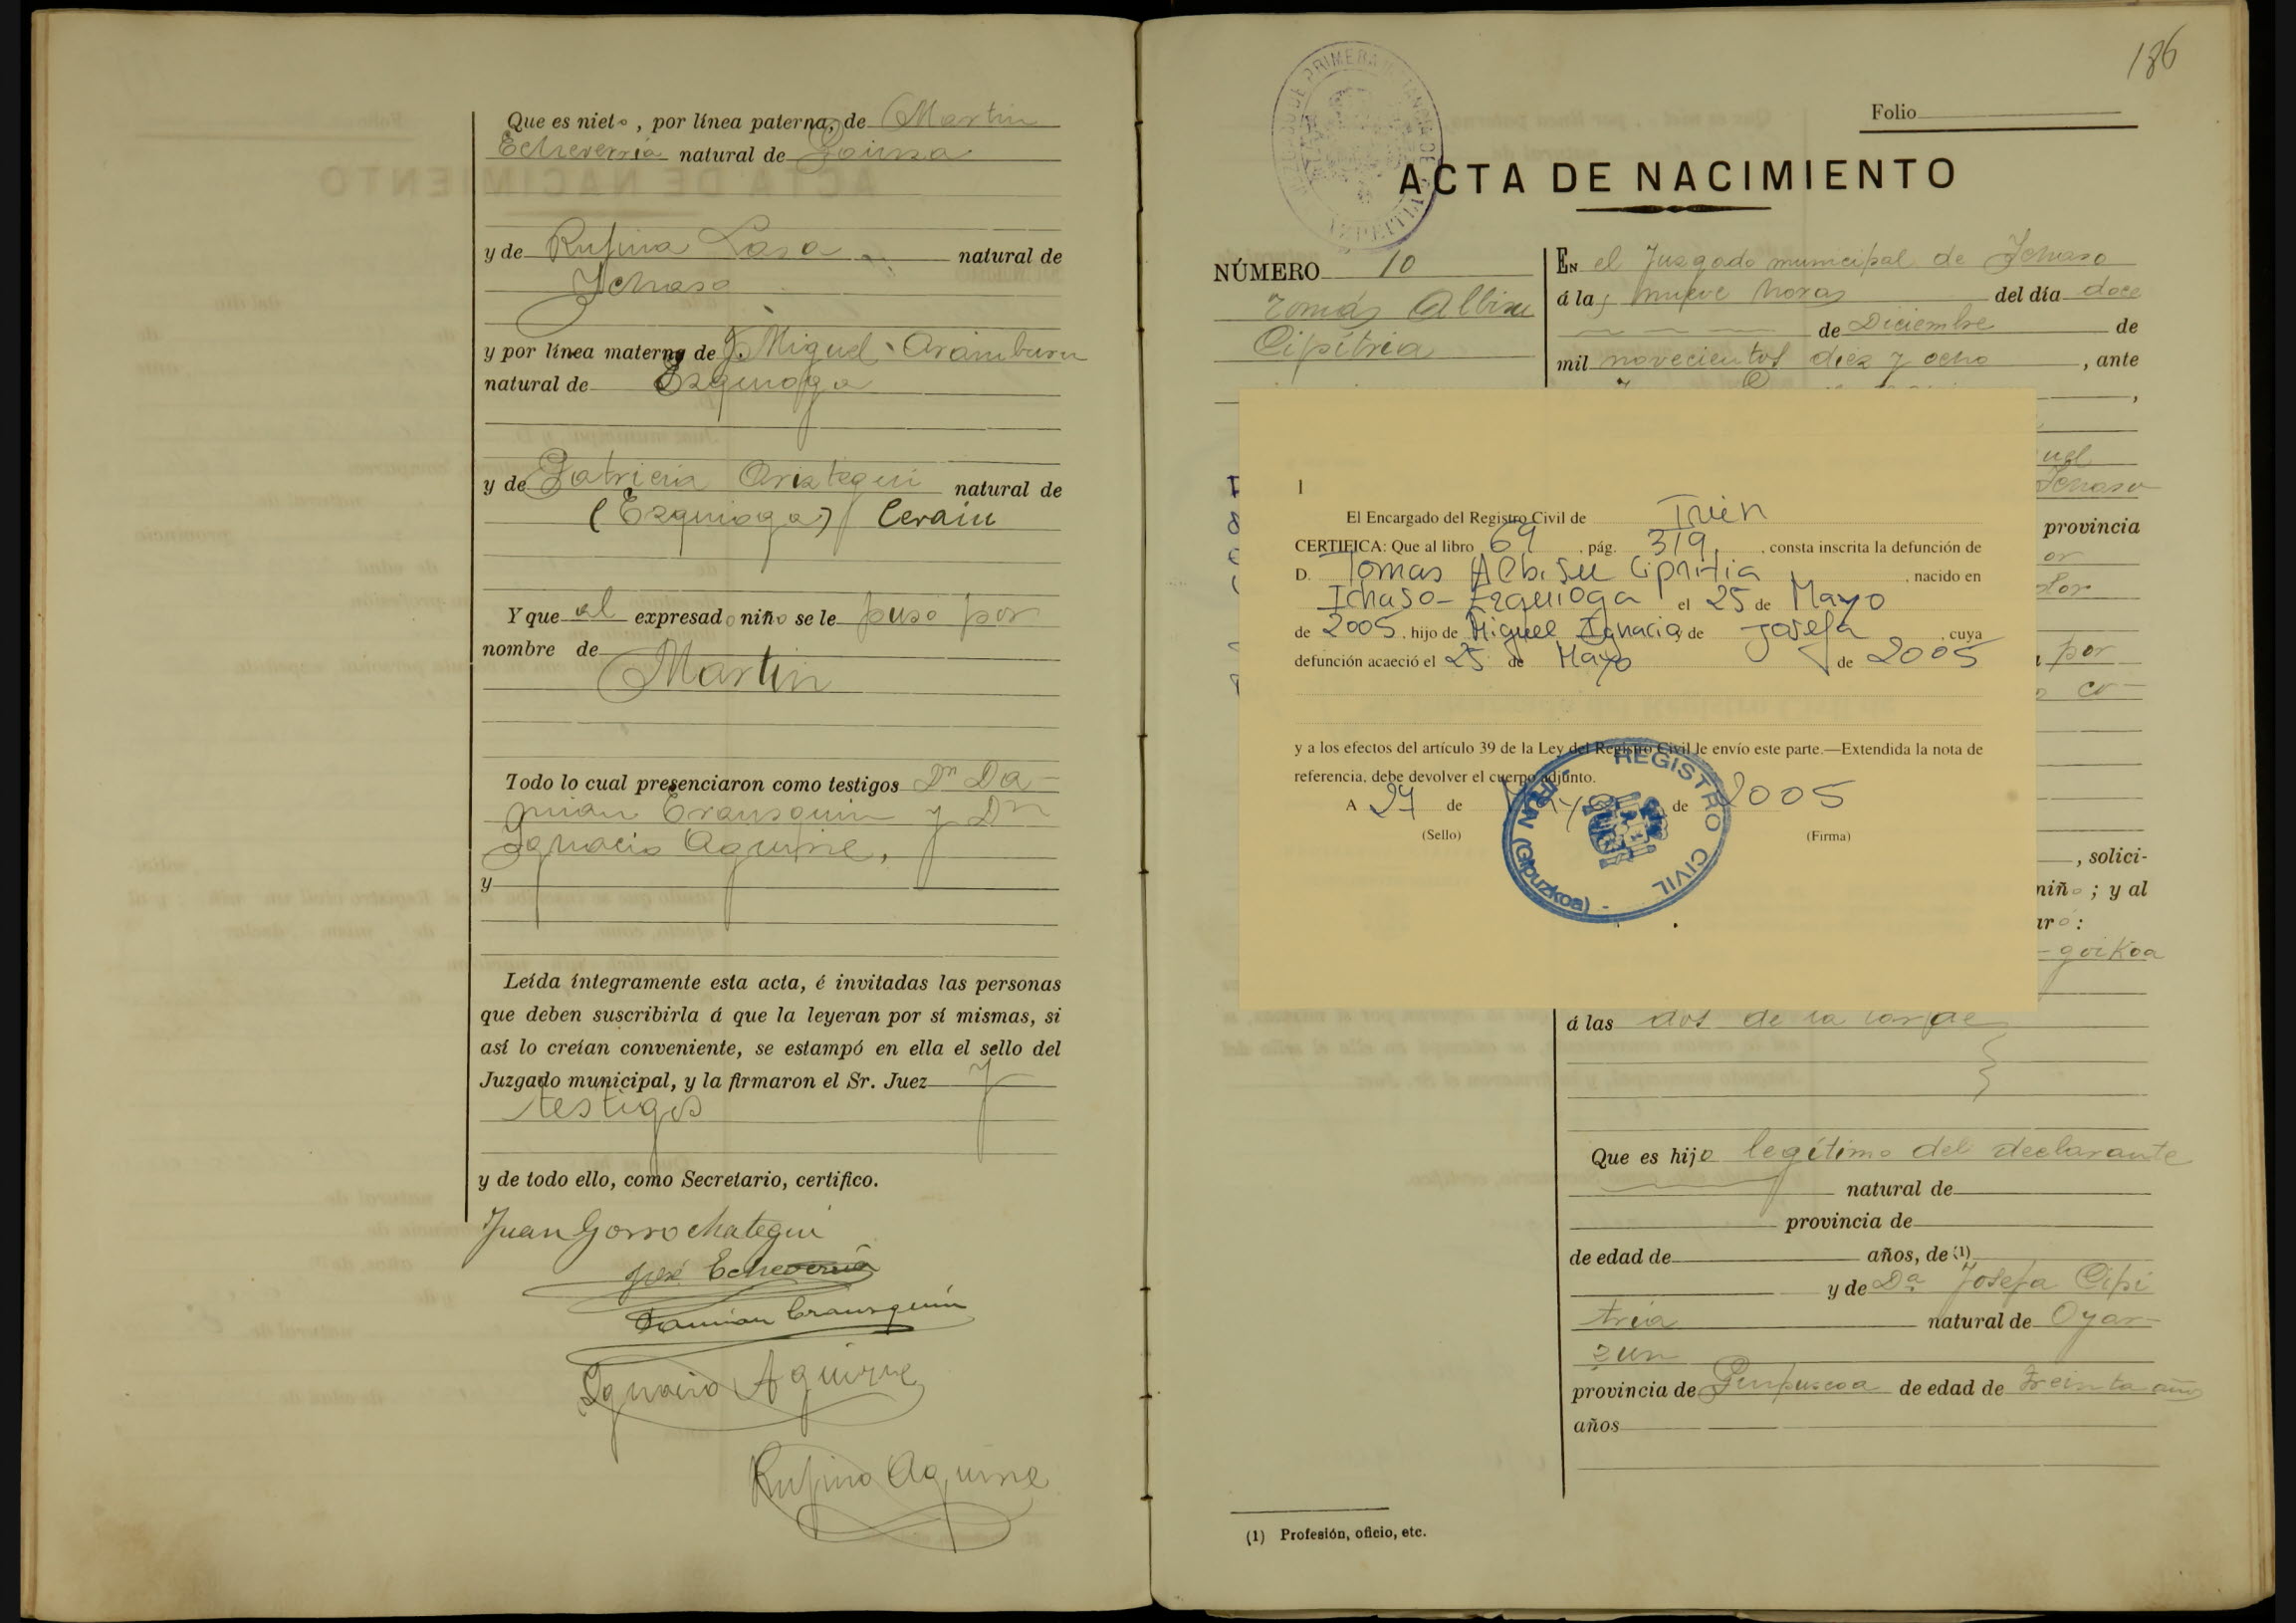 Que es nieto, por línea paterna, de Martin
Echeverria natural de Gainza
y de Rufina Lasa natural de
Ichaso
y por línea materna de J. Miguel Aramburu
natural de Ezquioga
y de Patricia Ariztegui natural de
(Ezquioga) Cerain
Y que al expresado niño se le puso por
nombre de
Martin
Todo lo cual presenciaron como testigos Dn Da-
mian Erausquin y Dn
Ignacio Aguirre,
y
Leída íntegramente esta acta, é invitadas las personas
que deben suscribirla á que la leyeran por sí mismas, si
así lo creían conveniente, se estampó en ella el sello del
Juzgado municipal, y la firmaron el Sr. Juez y
testigos
y de todo ello, como Secretario, certifico.
Juan Gorrochategui
José Echeverria
Damian Erausquin
Ignacio Aguirre
Rufino Aguirre
186
Folio
ACTA DE NACIMIENTO
NÚMERO 10
Tomás Albisu
Cipitria
En el Juzgado municipal de Ichaso
á las nueve horas del día doce
de Diciembre de
mil novecientos diez y ocho, ante
uel
Ichaso
provincia
or
dor
por
co-
, solici-
niño; y al
aró:
-goikoa
1
El Encargado del Registro Civil de Irún
CERTIFICA: Que al libro 69, pág. 319, consta inscrita la defunción de
D. Tomas Albisu Cipritia, nacido en
Ichaso-Ezquioga el 25 de Mayo
de 2005, hijo de Miguel Ignacio, de Josefa, cuya
defunción acaeció el 25 de Mayo de 2005
y a los efectos del artículo 39 de la Ley del Registro Civil le envío este parte.—Extendida la nota de
referencia, debe devolver el cuerpo adjunto.
A 27 de Mayo de 2005
(Sello) (Firma)
REGISTRO CIVIL
(Gipuzkoa)
á las dos de la tarde
Que es hijo legítimo del declarante
natural de
provincia de
de edad de años, de (1)
y de Da. Josefa Cipi
tria natural de Oyar-
zun
provincia de Guipuscoa de edad de treinta años
años
(1) Profesión, oficio, etc.